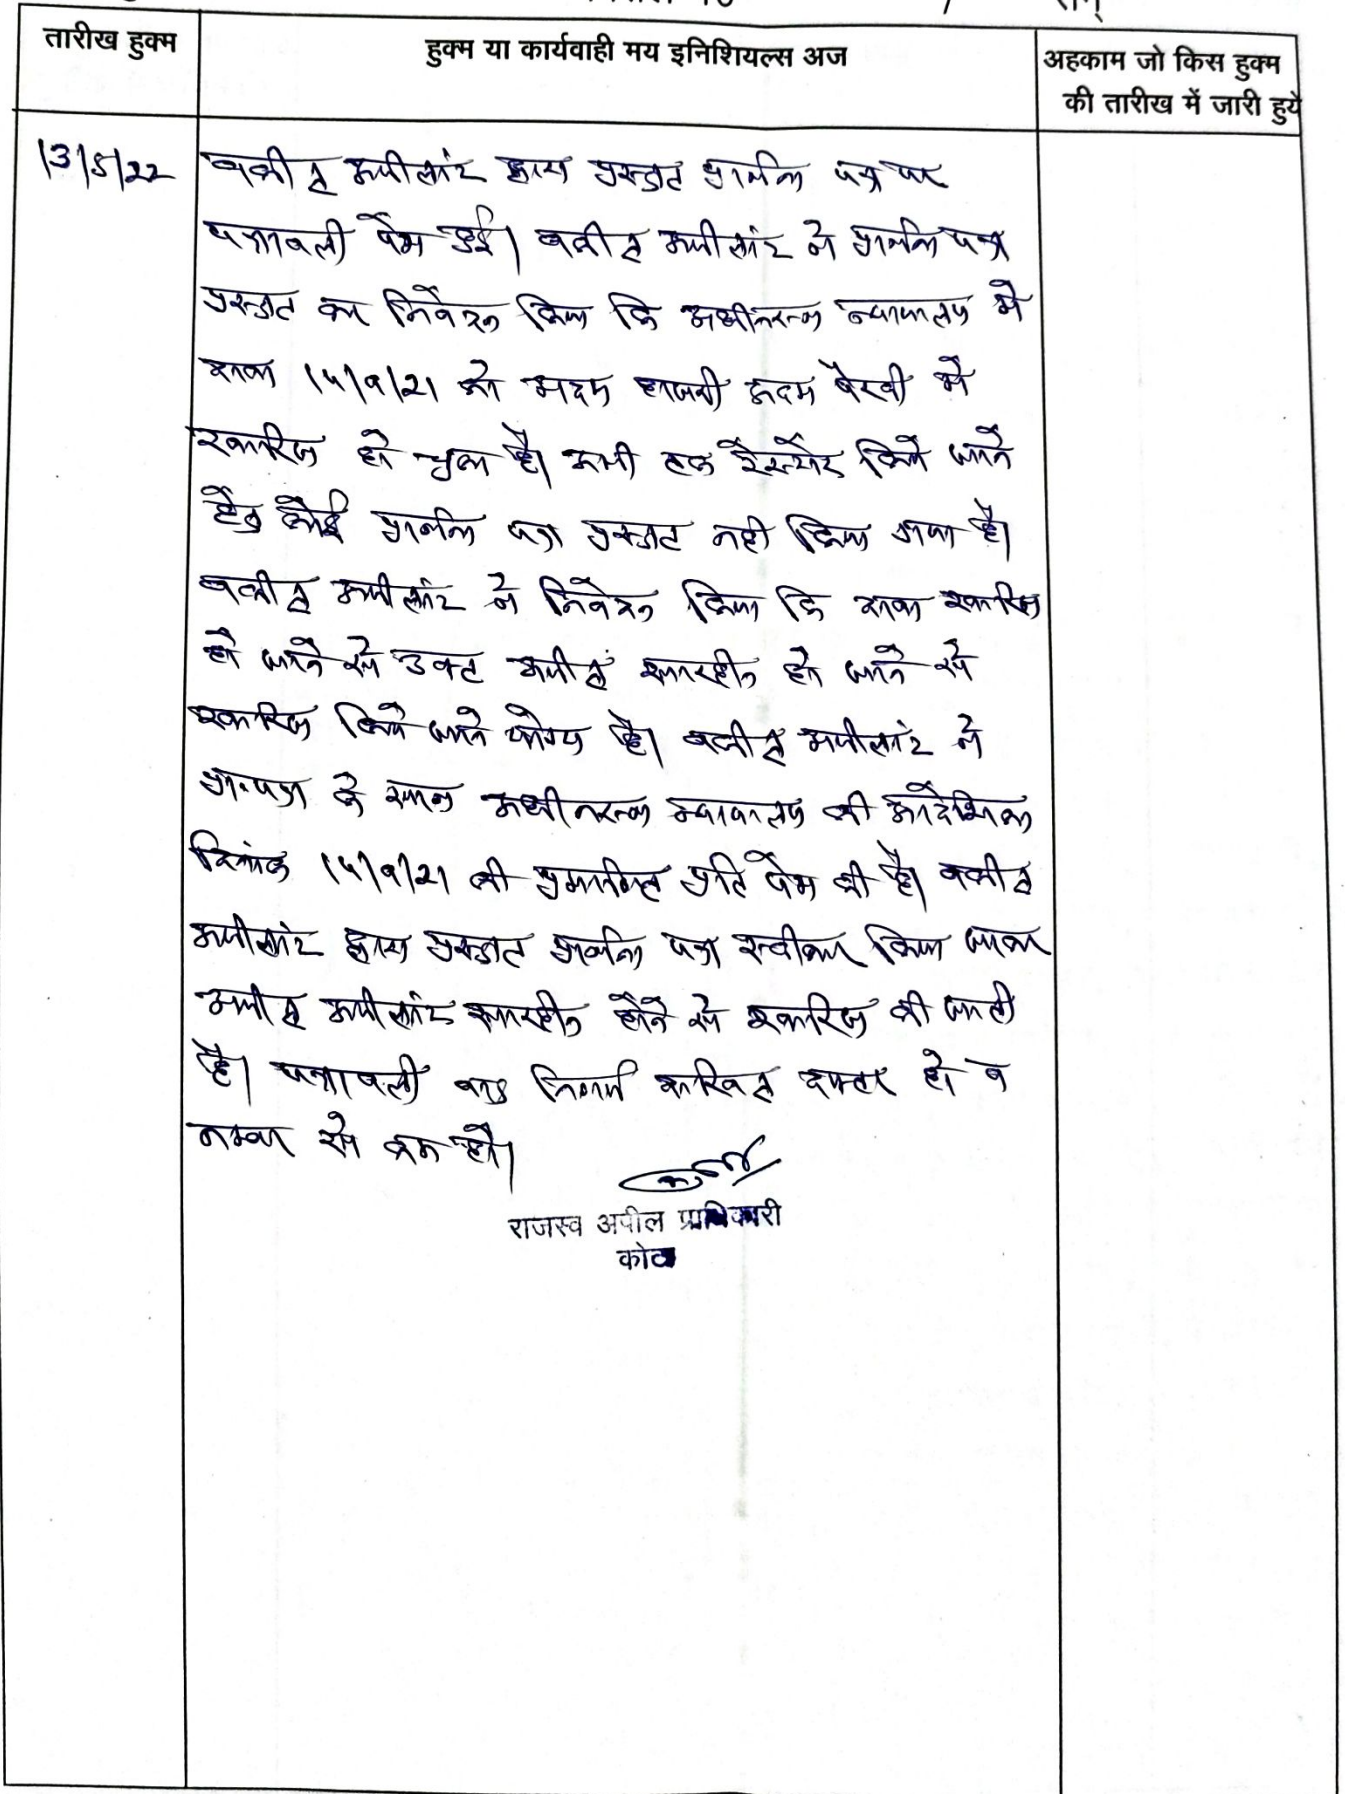 तारीख हुक्म
हुक्म या कार्यवाही मय इनिशियल्स अज
अहकाम जो किस हुक्म
की तारीख में जारी हुये
13/5/22
वकील अपीलांट द्वारा प्रस्तुत प्रार्थना पत्र पर
पत्रावली पेश हुई। वकील अपीलांट ने प्रार्थना पत्र
प्रस्तुत कर निवेदन किया कि अधीनस्थ न्यायालय में
दावा 15/9/21 को अदम हाजरी अदम पैरवी में
खारिज हो चुका है। अभी तक रेस्टोर किये जाने
हेतु कोई प्रार्थना पत्र प्रस्तुत नही किया गया है।
वकील अपीलांट ने निवेदन किया कि दावा खारिज
हो जाने से उक्त अपील सारहीन हो जाने से
खारिज किये जाने योग्य है। वकील अपीलांट ने
प्रा.पत्र के साथ अधीनस्थ न्यायालय की आदेशिका
दिनांक 15/9/21 की प्रमाणित प्रति पेश की है। वकील
अपीलांट द्वारा प्रस्तुत प्रार्थना पत्र स्वीकार किया जाकर
अपील अपीलांट सारहीन होने से खारिज की जाती
है। पत्रावली बाद निर्णय दाखिल दफ्तर हो व
नम्बर से कम हो।
राजस्व अपील प्राधिकारी
कोटा